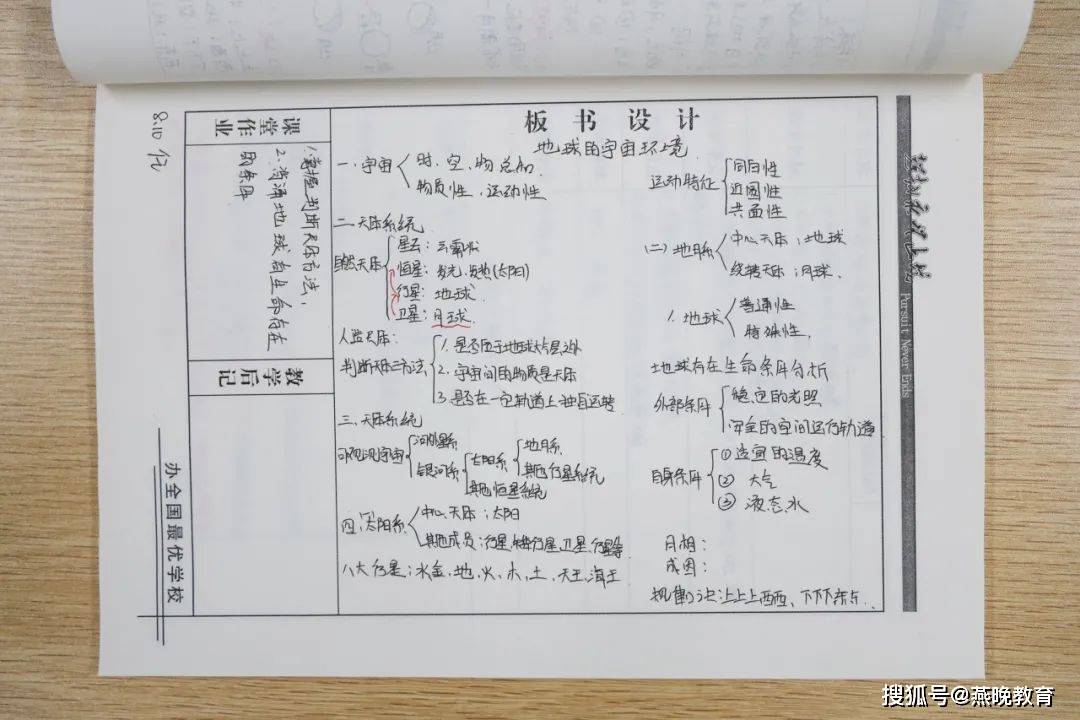 板书设计
地球的宇宙环境
一、宇宙
时、空、物总和
物质性、运动性
二、天体系统
自然天体
星云：云雾状
恒星：发光、发热(太阳)
行星：地球
卫星：月球
人造天体：
判断天体三方法
1.是否位于地球大气层之外
2.宇宙间的物质是天体
3.是否在一定轨道上独自运转
三、天体系统
可观测宇宙
河外星系
银河系
太阳系
地月系
其他行星系统
其他恒星系统
四、太阳系
中心天体：太阳
其他成员：行星、矮行星、卫星、
八大行星：水、金、地、火、木、土、天王、海王
运动特征
同向性
近圆性
共面性
(二)地月系
中心天体：地球
绕转天体：月球
1.地球
普通性
特殊性
地球存在生命条件分析
外部条件
稳定的光照
安全的空间运行轨道
自身条件
①适宜的温度
② 大气
③ 液态水
月相：
成因：
上上上西西、下下下东东
课堂作业
1.掌握判断天体方法，
2.背诵地球有生命存在
的条件
教学后记
8.10
办全国最优学校
Pursuit Never Ends
搜狐号@燕晚教育